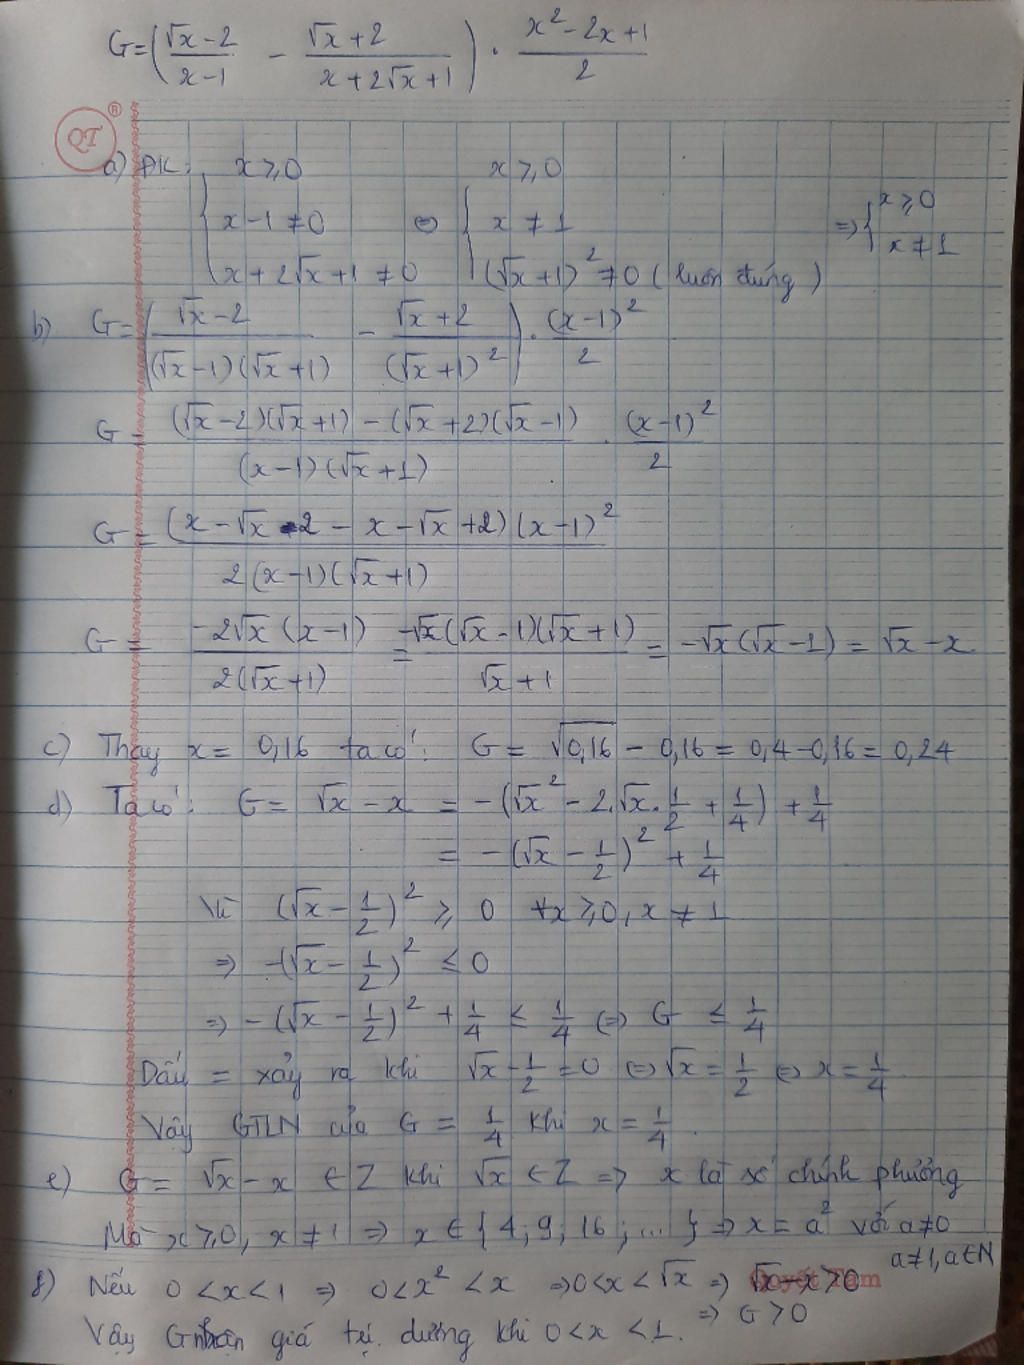 G=(√x-2/x-1 - √x+2/x+2√x+1) · x²-2x+1/2
QT ®
a) ĐK: { x≥0 x-1≠0 x+2√x+1≠0 ⇔ { x≥0 x≠1 (√x+1)²≠0 (luôn đúng) => { x≥0 x≠1
b) G=(√x-2/(√x-1)(√x+1) - √x+2/(√x+1)²) · (x-1)²/2
G = (√x-2)(√x+1) - (√x+2)(√x-1)/(x-1)(√x+1) · (x-1)²/2
G = (x-√x-2 - x-√x+2)(x-1)²/2(x-1)(√x+1)
G = -2√x(x-1)/2(√x+1) = -√x(√x-1)(√x+1)/√x+1 = -√x(√x-1) = √x-x.
c) Thay x = 0,16 ta có: G = √0,16 - 0,16 = 0,4-0,16 = 0,24
d) Ta có: G = √x - x = -(√x² - 2.√x.1/2 + 1/4) + 1/4
= -(√x - 1/2)² + 1/4
Vì (√x - 1/2)² ≥ 0 ∀x≥0, x≠1
=> -(√x - 1/2)² ≤ 0
=> -(√x - 1/2)² + 1/4 ≤ 1/4 (=) G ≤ 1/4
Dấu = xảy ra khi √x-1/2=0 ⇔ √x=1/2 ⇔ x=1/4.
Vậy GTLN của G = 1/4 khi x = 1/4.
e) G = √x - x ∈ Z khi √x ∈ Z => x là số chính phương
Mà x≥0, x≠1 => x ∈ {4; 9; 16; ...} => x = a² với a≠0
a≠1, a∈N
Quyết Tâm
f) Nếu 0<x<1 => 0<x²<x => 0<x<√x => √x-x>0
=> G>0
Vậy G nhận giá trị dương khi 0<x<1.